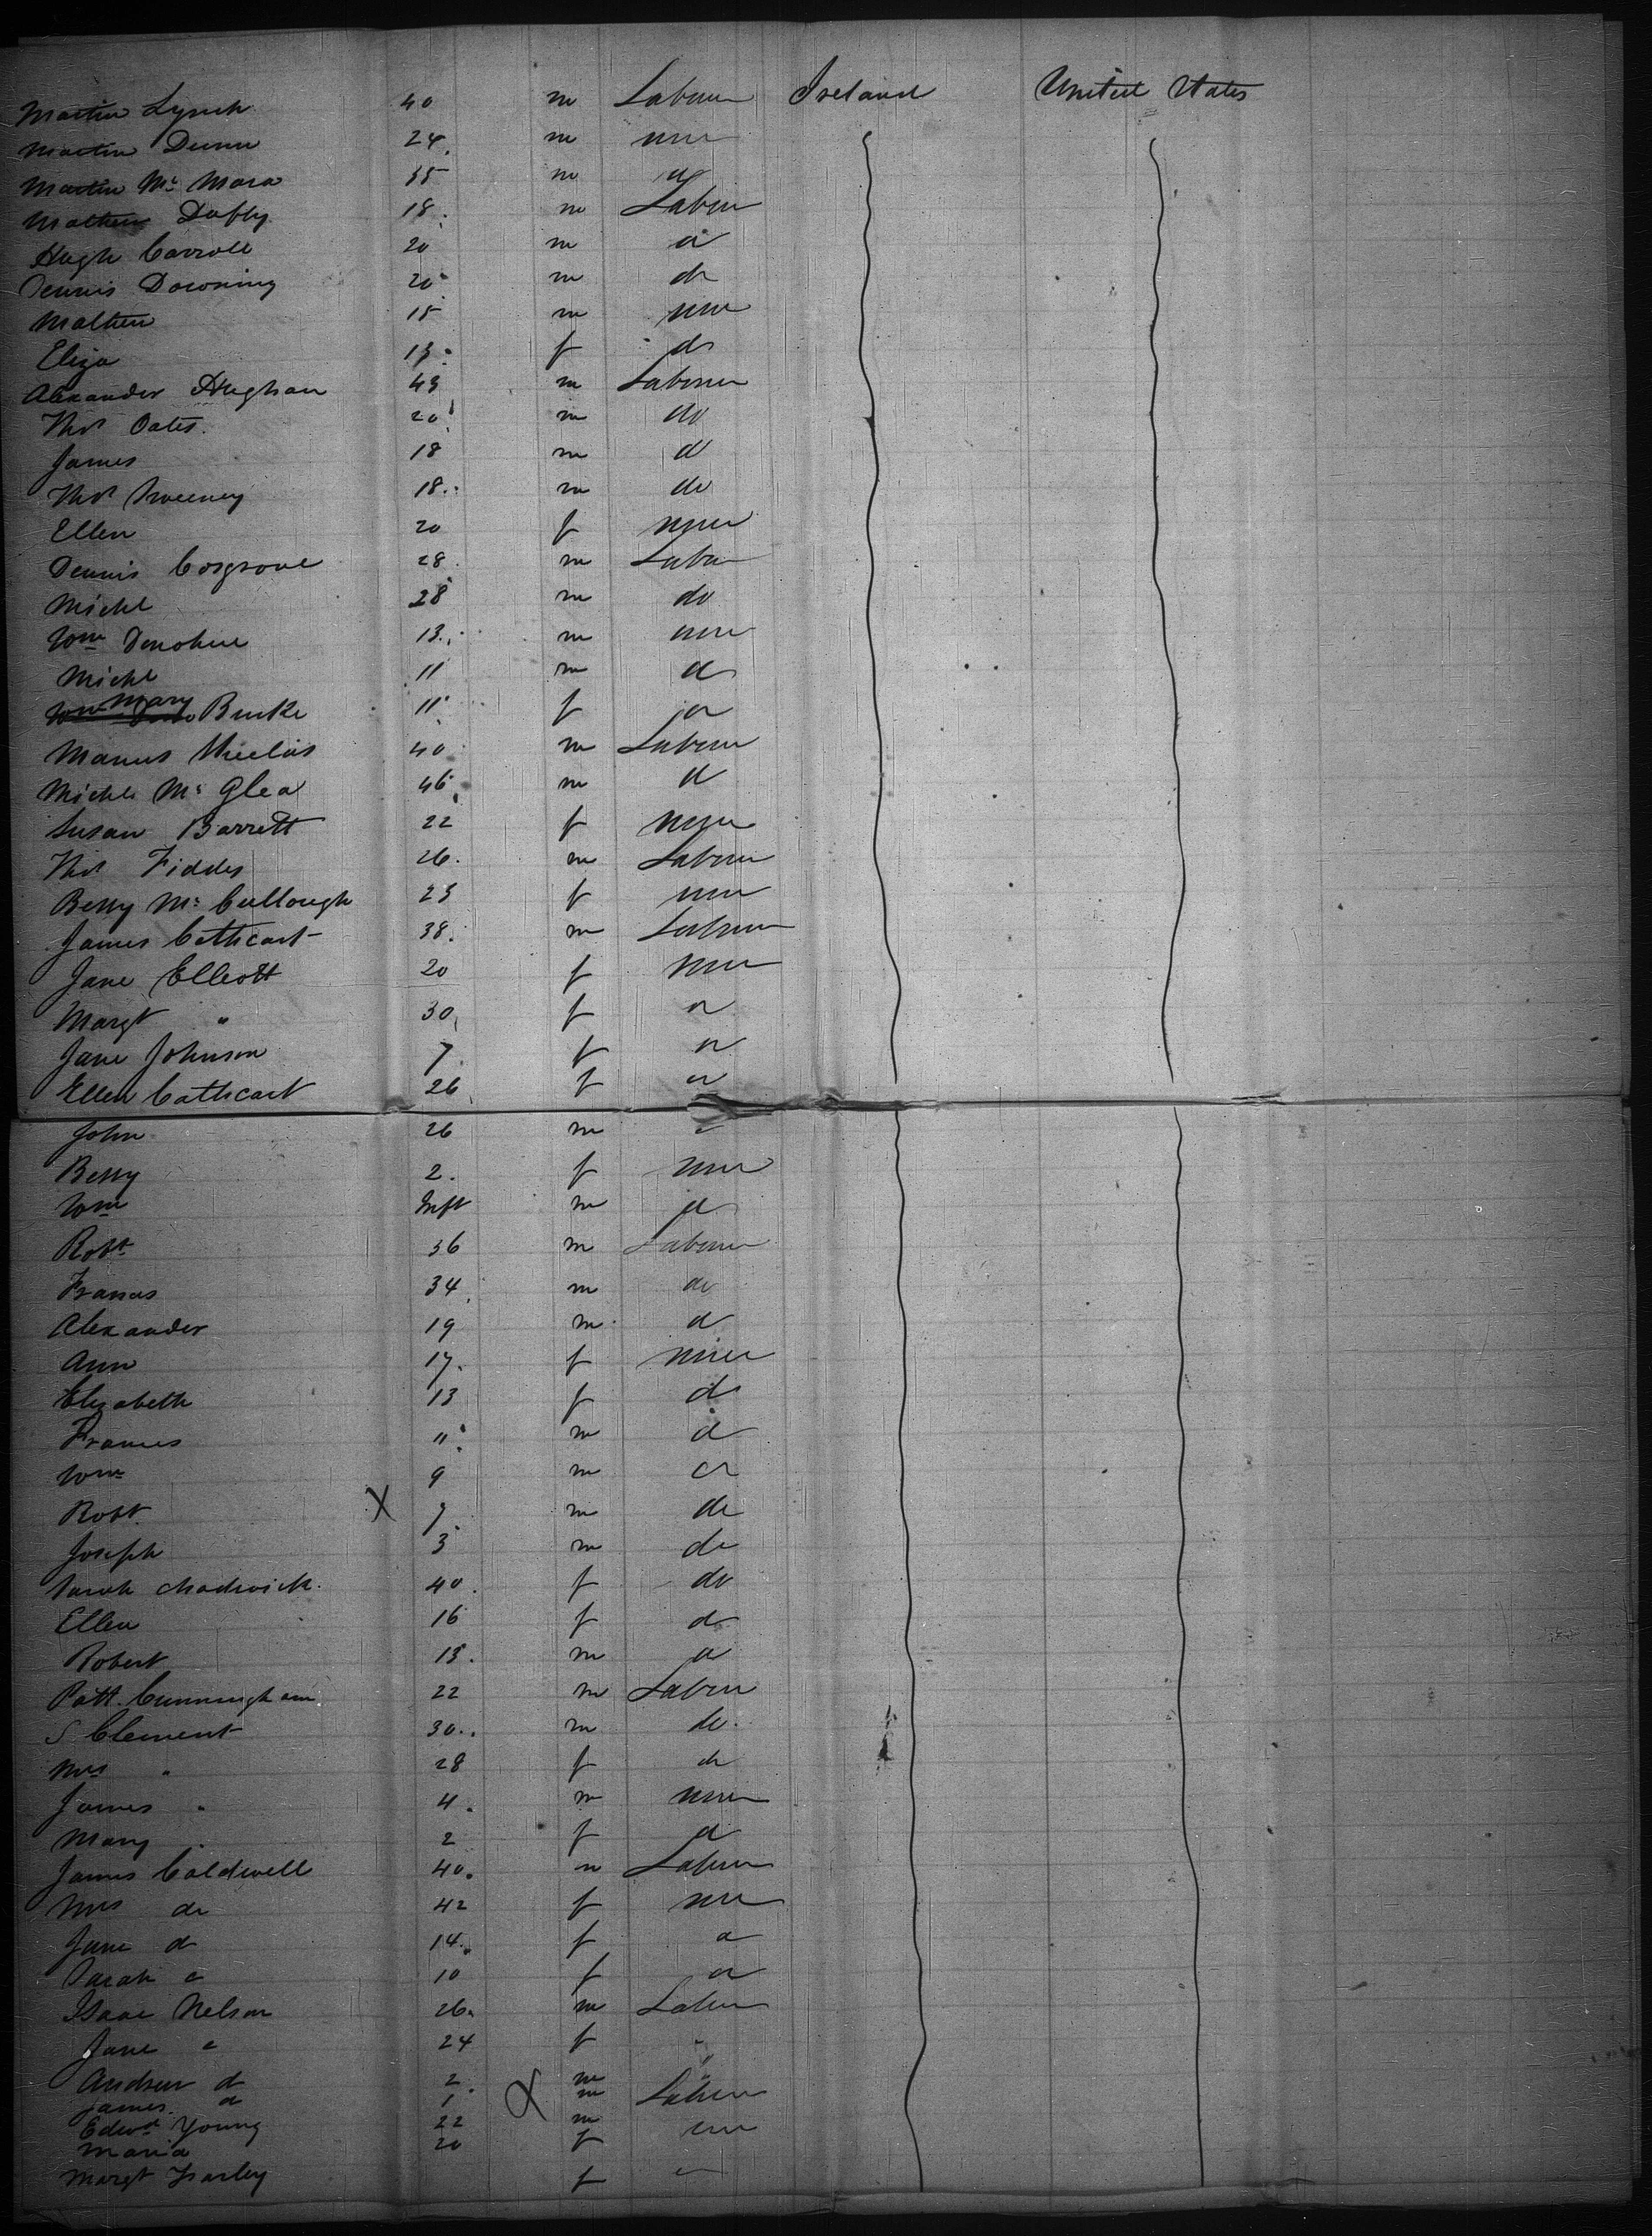 Martin Lynch 40 m Labourer Ireland United States
Martin Dunn 24 m none
Martin Mc Mara 35 m d
Mathew Duffy 18 m Labourer
Hugh Carroll 20 m d
Dennis Downing 20 m do
Mathew 15 m none
Eliza 13 f do
Alexander Hughan 43 m Labourer
Thos Oates 20 m do
James 18 m d
Thos Sweeney 18 m do
Ellen 20 f none
Dennis Cosgrove 28 m Labour
Michl 28 m do
Wm Donohue 13 m none
Michl 11 m d
Mary Burke 11 f do
Manus 40 m Labour
Michl Mc Glea 46 m d
Susan Barrett 22 f none
Thos Fiddes 26 m Labour
Bessy Mc Cullough 23 f none
James Cathcart 38 m Labour
Jane Elliott 20 f none
Margt " 30 f do
Jane Johnson 7 f do
Ellen Cathcart 26 f do
John 26 m
Bessy 2 f none
Wm Inft m d
Robt 36 m Labourer
Francis 34 m do
Alexander 19 m d
Ann 17 f none
Elizabeth 13 f do
Francis 11 m d
Wm 9 m do
Robt X 7 m do
Joseph 3 m do
Sarah Chadwick 40 f do
Ellen 16 f do
Robert 13 m do
Patt. Cunningham 22 m Labour
S Clement 30 m do
Mrs " 28 f do
James " 4 m none
Mary " 2 f d
James Caldwell 40 m Labour
Mrs do 42 f none
Jane d 14 f
Sarah 10 f do
Isaac Nelson 26 m Labour
Jane 24 f "
Andrew d 2 m "
James d 1 X m Labour
Edwd Young 22 m none
Maria 20 f
Margt f